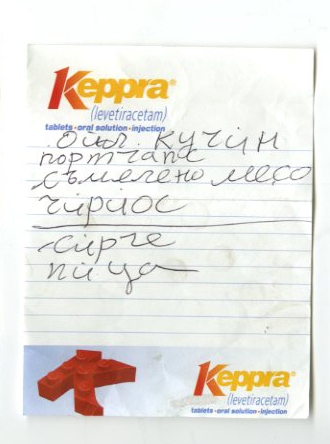 Keppra®
(levetiracetam)
tablets • oral solution • injection
ойл. кучин
портчапс
съмлено месо
чириос
сирче
пица
Keppra®
(levetiracetam)
tablets • oral solution • injection